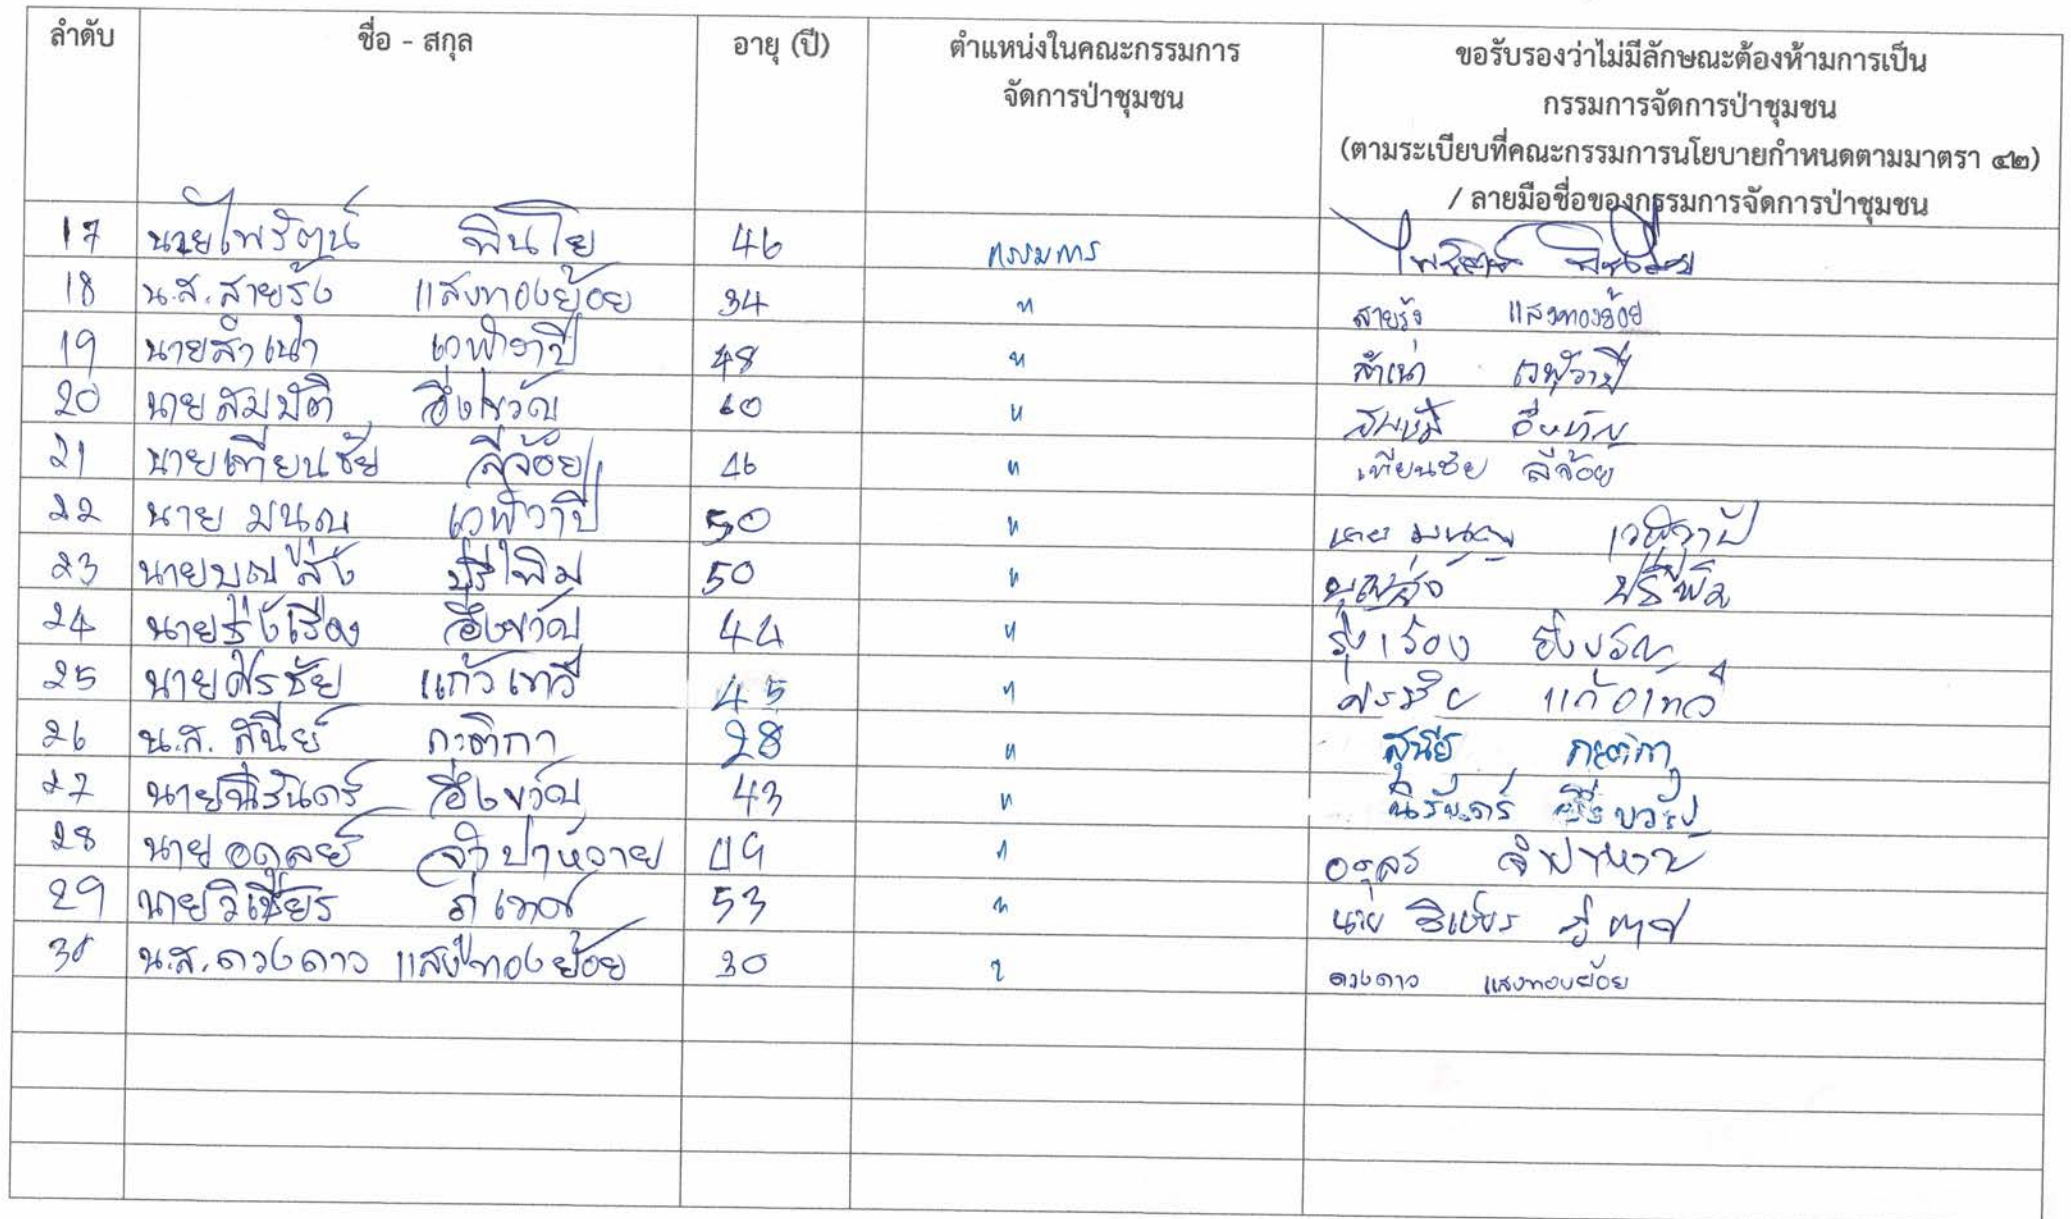 ลำดับ ชื่อ - สกุล อายุ (ปี) ตำแหน่งในคณะกรรมการ ขอรับรองว่าไม่มีลักษณะต้องห้ามการเป็น
จัดการป่าชุมชน กรรมการจัดการป่าชุมชน
(ตามระเบียบที่คณะกรรมการนโยบายกำหนดตามมาตรา ๔๒)
/ ลายมือชื่อของกรรมการจัดการป่าชุมชน
17 นายไพรัตน์ พินโย 46 กรรมการ
18 น.ส. สายรุ้ง แสงทองย้อย 34 " สายรุ้ง แสงทองย้อย
19 นายสำเนา เวฬุวาปี 48 " สำเนา เวฬุวาปี
20 นายสมบัติ อึ่งขวัญ 60 "
21 นายเทียนชัย ลีจ้อย 46 " เทียนชัย ลีจ้อย
22 นาย มนูญ เวฬุวาปี 50 " นาย มนูญ เวฬุวาปี
23 นายบุญส่ง ปรีพิม 50 " บุญส่ง ปรีพิม
24 นายรุ่งเรือง อึ่งขวัญ 44 " รุ่งเรือง อึ่งขวัญ
25 นายศรชัย แก้วเทวี 45 " ศรชัย แก้วเทวี
26 น.ส. สุนีย์ ภวติกา 28 " สุนีย์
27 นายนิรันดร์ อึ่งขวัญ 43 " นิรันดร์ อึ่งขวัญ
28 นายอดุลย์ จำปาหวาย 49 " จำปาหวาย
29 นายวิเชียร ภูเทศ 53 " นาย วิเชียร ภูเทศ
30 น.ส. ดวงดาว แสงทองย้อย 30 " ดวงดาว แสงทองย้อย